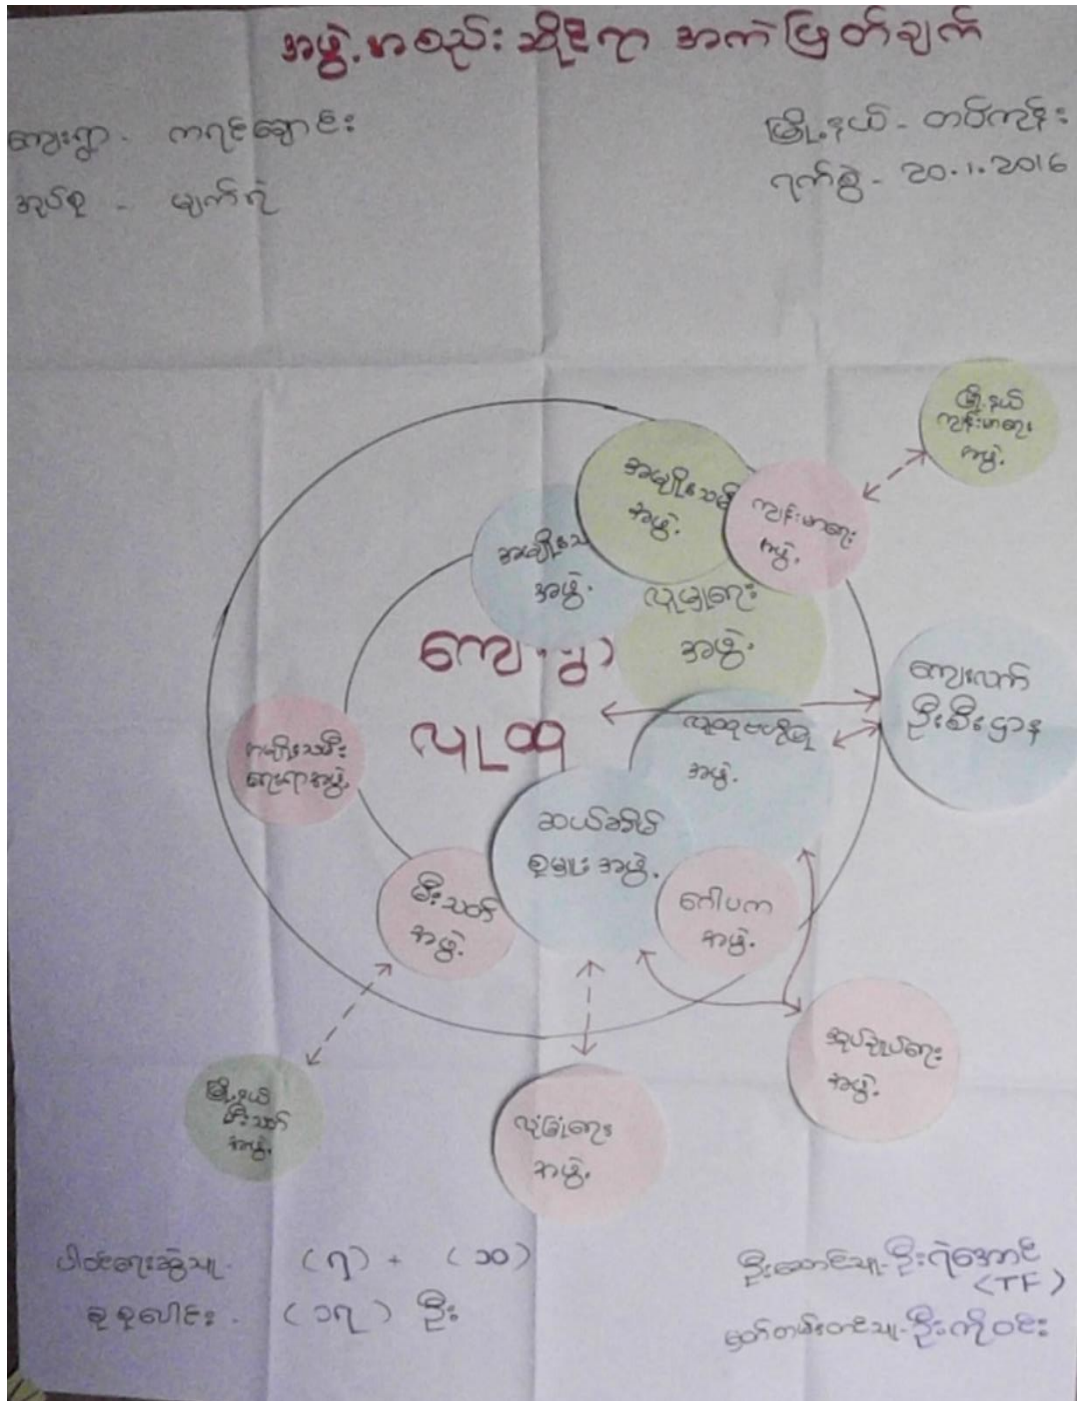 အဖွဲ့အစည်းဆိုင်ရာ အကဲဖြတ်ချက်
ကျေးရွာ - ကရင်ချောင်း
မြို့နယ် - တပ်ကုန်း
အုပ်စု - မျက်ရဲ
ရက်စွဲ - 20.1.2016
မြို့နယ်
ကျန်းမာရေး
အဖွဲ့
အမျိုးသမီး
အဖွဲ့
ကျန်းမာရေး
အဖွဲ့
အမျိုးသ
အဖွဲ့
လူမှုရေး
အဖွဲ့
ကျေးရွာ
လူထု
ကျေးလက်
ဦးစီးဌာန
လူထုဗဟိုပြု
အဖွဲ့
အမျိုးသမီး
ရေးရာအဖွဲ့
ဆယ်အိမ်
စုမှူးအဖွဲ့
မီးသတ်
အဖွဲ့
ဂေါပက
အဖွဲ့
အုပ်ချုပ်ရေး
အဖွဲ့
မြို့နယ်
မီးသတ်
အဖွဲ့
လုံခြုံရေး
အဖွဲ့
ပါဝင်ဆွေးနွေးသူ - (၇) + (၁၀)
စုစုပေါင်း - (၁၇) ဦး
ဦးဆောင်သူ - ဦးရဲအောင်
(TF)
မှတ်တမ်းတင်သူ - ဦးကိုဝင်း